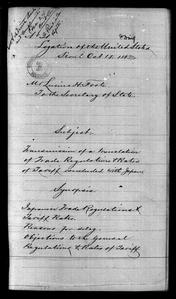 Legation of the United States
Seoul Oct 18. 188
Mr Lucius H. Foote
To the Secretary of State.
Subject.
Transmission of a translation
of Trade Regulations & Rates
of Tariff concluded with Japan
Synopsis
Japanese Trade Regulations &
Tariff Rates.
Reasons for delay
Objections to the General
Regulations & Rates of Tariff.